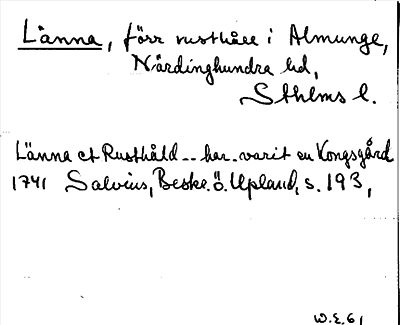 Länna, förr rusthåll i Almunge,
Närdinghundra hd,
Sthlms l.
Länna et Rusthåld -- har varit en Kongsgård
1741 Salvius, Beskr. ö. Upland, s. 193,
W.E.61